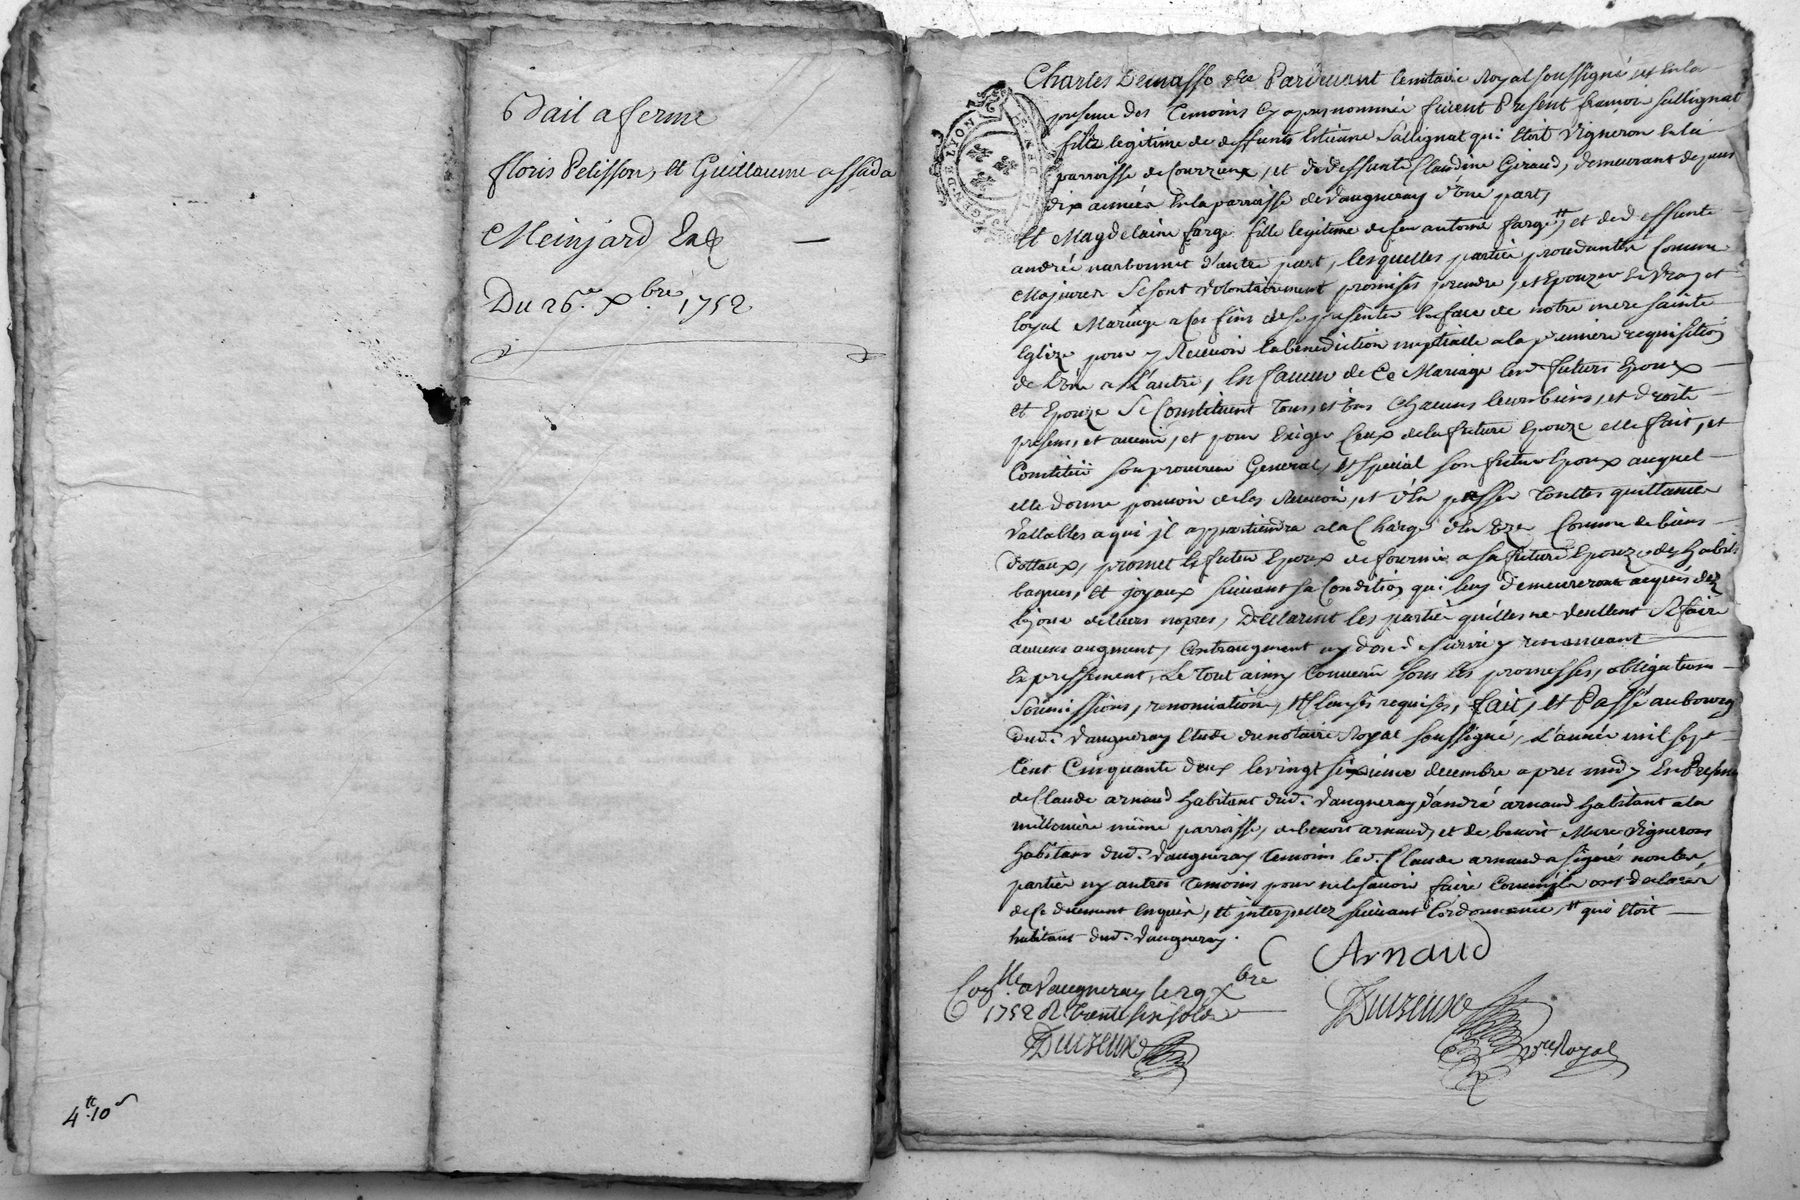 Bail a ferme
floris Pelisson, et Guillaume assada
Meinjard
Du 26.e Xbre 1752
4tt.10s
GEN. DE LYON
Charles Demasso &ce Pardevant le notaire Royal soussigné, et en la
presence des Temoins cy apres nommés furent Present françois sallignat
fils legitime de deffunts Estienne Sallignat qui etoit vigneron en la
parroisse de Courzieux, et de deffunte Claudine Giraud, demeurant depuis
dix années en la parroisse de Vaugneray d'une part,
Et Magdelaine farge fille legitime de feu antoine farge, tt et de deffunte
andrée narbonnet d'autre part, lesquelles partie procedantes comme
Majeures se sont volontairement promises prendre, et Epouzer en vray et
loyal Mariage a ces fins de se presenter en face de notre mere sainte
Eglize pour y Recevoir la benediction nuptialle a la premiere requisition
de L'une a L'autre, En faveur de Ce Mariage les futurs Epoux
et Epouze se Constituent tous, et uns chacuns leurs biens, et droits
presens, et avenir, et pour Exiger ceux de la future Epouze elle fait, et
Constitue son procureur General, et special son futur Epoux auquel
elle donne pouvoir de les Recevoir, et d'en passer touttes quittances
vallables a qui jl appartiendra a la Charge d'en Comme de biens
dottaux, promet le futur Epoux de fournir a sa future Epouze des habits
bagues, et joyaux suivant sa Condition qui luy demeureront acquis dez
Declarent les partie qu'elles ne veullent se faire
aucuns augment, Contraugment ny don de survie y renonceant
Expressement, Le tout ainsy Convenu sous les promesses, obligations
soumissions, renonciations, et clauses requises, fait, et Passé au bourg
dud. Vaugneray Etude du notaire Royal soussigné, L'année mil sept
Cent Cinquante deux le vingt sixieme decembre apres midy En Presence
de Claude arnaud habitant dud. Vaugneray d'andré arnaud habitant a la
millonière même parroisse, de benoit arnaud, et de benoit Mure vignerons
habitans dud. Vaugneray temoins led. Claude arnaud a signé non les
partie ny autres temoins pour ne le savoir faire Comm'ils ont declarés
de Ce duement enquis, et interpellez suivant l'ordonnance, tt qui etoit
habitant dud. Vaugneray.
C Arnaud
Conlle a Vaugneray le 29 Xbre
1752 R trente six sols
Duizeux
Duizeux
nre Royal